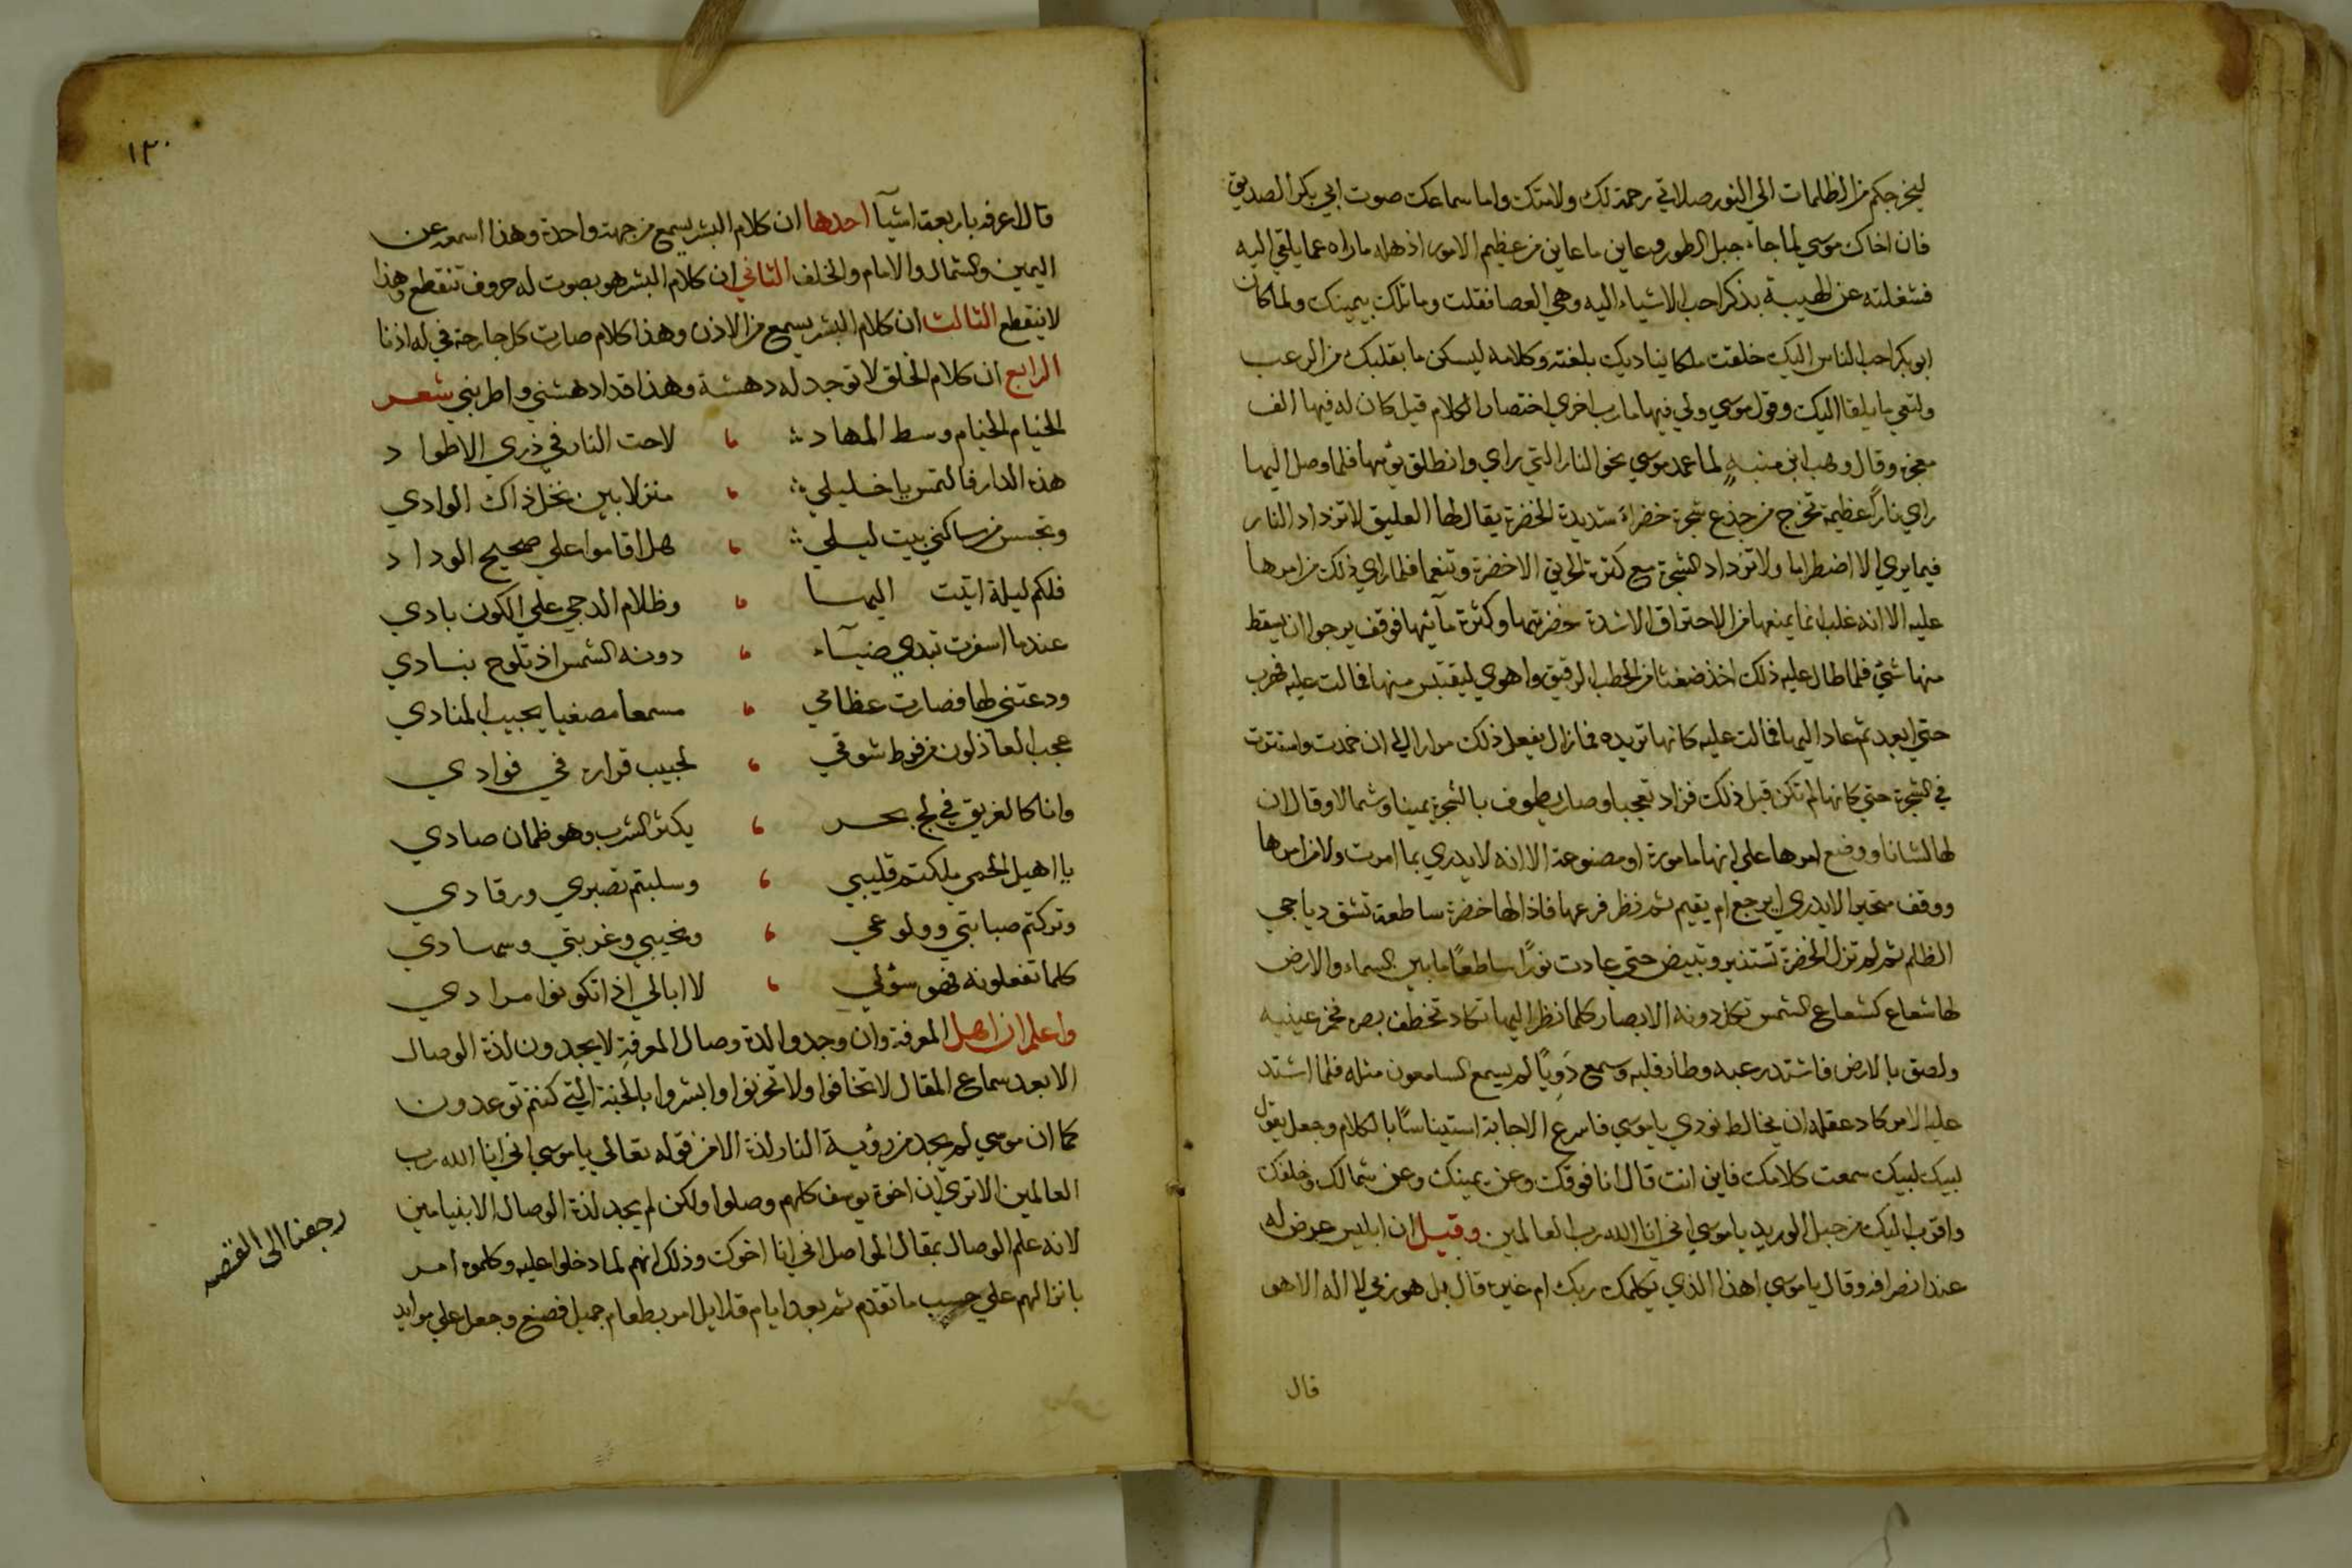 ليخرجكم من الظلمات الى النور صلاتي رحمة لك ولامتك واما سماعك صوت ابي بكر الصديق
فان اخاك موسي لما جاء جبل الطور وعاين ما عاين من عظيم الامور اذهله ماراه عما يلقي اليه
فشغلته عن الهيبة بذكر احب الاشياء اليه وهي العصا فقلت وما تلك بيمينك ولما كان
ابو بكر احب الناس اليك خلقت ملكا يناديك بلغته وكلامه ليسكن ما بقلبك من الرعب
ولتعي ما يلقا اليك وقول موسي ولي فيها مارب اخري اختصار الكلام قيل كان له فيها الف
معجزه وقال وهب ابن منبه لما عمد موسي نحو النار التي راي وانطلق يؤمها فلما وصل اليها
راي ناراً عظيمة تخرج من جذع شجرة خضراء شديدة الخضرة يقال لها العليق لا تزداد النار
فيما يري الا اضطراما ولا تزداد الشجرة مع كثرة الحريق الا خضرة وتنعما فلما راي ذلك من امرها
عليه الا انه غلب انما يمنعها من الاحتراق الا شدة خضرتها وكثرة مآئها فوقف يرجوا ان يسقط
منها شئ فلما طال عليه ذلك اخذ ضغثا من الحطب الرقيق واهوي ليقتبس منها فمالت عليه فهرب
حتي ابعد ثم عاد اليها فمالت عليه كانها تريده فما زال يفعل ذلك مرارا الي ان خمدت واستترت
في الشجرة حتي كانها لم تكن قبل ذلك فزاد تعجبا وصار يطوف بالشجرة يمينا وشمالا وقال ان
لها لشانا ووضع امرها على انها مامورة او مصنوعة الا انه لا يدري بما امرت ولا من امرها
ووقف متحيرا لا يدري ايرجع ام يقيم ثم نظر فرعها فاذا لها خضرة ساطعة تشق دياجي
الظلم ثم لم تزل الخضرة تستنير وتبيض حتي عادت نوراً ساطعاً ما بين السماء والارض
لها شعاع كشعاع الشمس تكل دونه الابصار كلما نظر اليها تكاد تخطف بصره فخمر عينيه
ولصق بالارض فاشتد رعبه وطار قلبه وسمع دَوِيّاً لم يسمع السامعون مثله فلما اشتد
عليه الامر كاد عقله ان يخالط نودي يا موسي فاسرع الاجابة استيناساً بالكلام وجعل يقول
لبيك لبيك سمعت كلامك فاين انت قال انا فوقك وعن يمينك وعن شمالك وخلفك
واقرب اليك من حبل الوريد يا موسي اني انا الله رب العالمين وقيل ان ابليس عرض له
عند انصرافه وقال يا موسي اهذا الذي يكلمك ربك ام غيره قال بل هو ربي لا اله الا هو
قال
١٣٠
قال اعرفه باربعة اشيآ احدها ان كلام البشر يسمع من جهة واحدة وهذا اسمعه عن
اليمين والشمال والامام والخلف الثاني ان كلام البشر هو بصوت له حروف تنقطع وهذا
لا ينقطع الثالث ان كلام البشر يسمع من الاذن وهذا كلام صارت كل جارحة في له اذنا
الرابع ان كلام الخلق لا توجد له دهشة وهذا قد ادهشني واطربني شعر
الخيام الخيام وسط المهاد لاحت النار في ذري الاطواد
هذه الدار فالتمس يا خليلي منزلا بين نخل ذاك الوادي
وتجسس من ساكني بيت ليلي هل اقاموا علي صحيح الوداد
فلكم ليلة اتيت اليها وظلام الدجي علي الكون بادي
عندما اسفرت تبدي ضيآء دونه الشمس اذ تلوح بنادي
ودعتني لها فصارت عظامي مسمعا مصغيا يجيب المنادي
عجب العاذلون من فرط شوقي لحبيب قراره في فوادي
وانا كالغريق في لج بحر يكثر الشرب وهو ظمان صادي
يا اهيل الحمي ملكتم قليبي وسلبتم تصبري ورقادي
وتركتم صبابتي وولوعي ونحيبي وغربتي وسهادي
كلما تفعلونه فهو سؤلي لا ابالي اذا تكونوا مرادي
واعلم ان اهل المعرفة وان وجدوا لذة وصال المعرفةِ لا يجدون لذة الوصال
الا بعد سماع المقال لا تخافوا ولا تحزنوا وابشروا بالجنة التي كنتم توعدون
كما ان موسي لم يجد من رؤية النار لذة الا من قوله تعالي يا موسي اني انا الله رب
العالمين الا تري ان اخوة يوسف كلهم وصلوا ولكن لم يجد لذة الوصال الا بنيامين
لانه علم الوصال بمقال المواصل اني انا اخوك وذلك انهم لما دخلوا عليه وكلموه امر
بانزالهم علي حسب ما تقدم ثم بعد ايام قلايل امر بطعام جميل فصنع وجعل علي موايد
رجعنا الى القصه